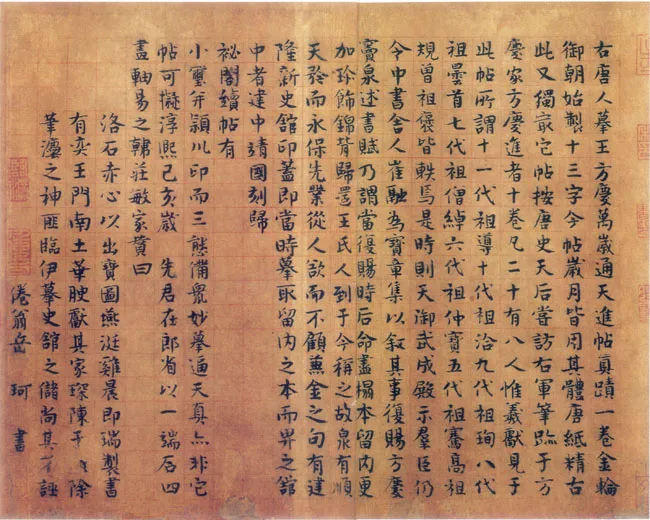 右唐人摹王方慶萬歲通天進帖真蹟一卷金輪
御朝始製十三字今帖歲月皆用其體唐紙精古
此又獨最它帖按唐史天后嘗訪右軍筆蹟于方
慶家方慶進者十卷凡二十有八人惟羲獻見于
此帖所謂十一代祖導十代祖洽九代祖珣八代
祖曇首七代祖僧綽六代祖仲寶五代祖騫高祖
規曾祖褒皆軼焉是時則天御武成殿示羣臣仍
令中書舍人崔融為寶章集以叙其事復賜方慶
竇泉述書賦乃謂當復賜時后命盡搨本留内更
加珍飾錦背歸還王氏人到于今稱之故泉有順
天矜而永保先業從人欲而不顧兼金之句有建
隆新史舘印蓋即當時摹取留内之本而畀之舘
中者建中靖國刻歸
祕閣續帖有
小璽并潁川印而三態備衆妙摹逼天真亦非它
帖可擬淳熙己亥歲 先君在郎省以一端石四
畫軸易之韓莊敏家贊曰
洛石赤心以出寶圖燕涎雞晨即瑞製書
有奕王門南土華腴獻其家琛陳于 除
筆灋之神匪臨伊摹史舘之儲尚其 誣
倦翁岳 珂 書